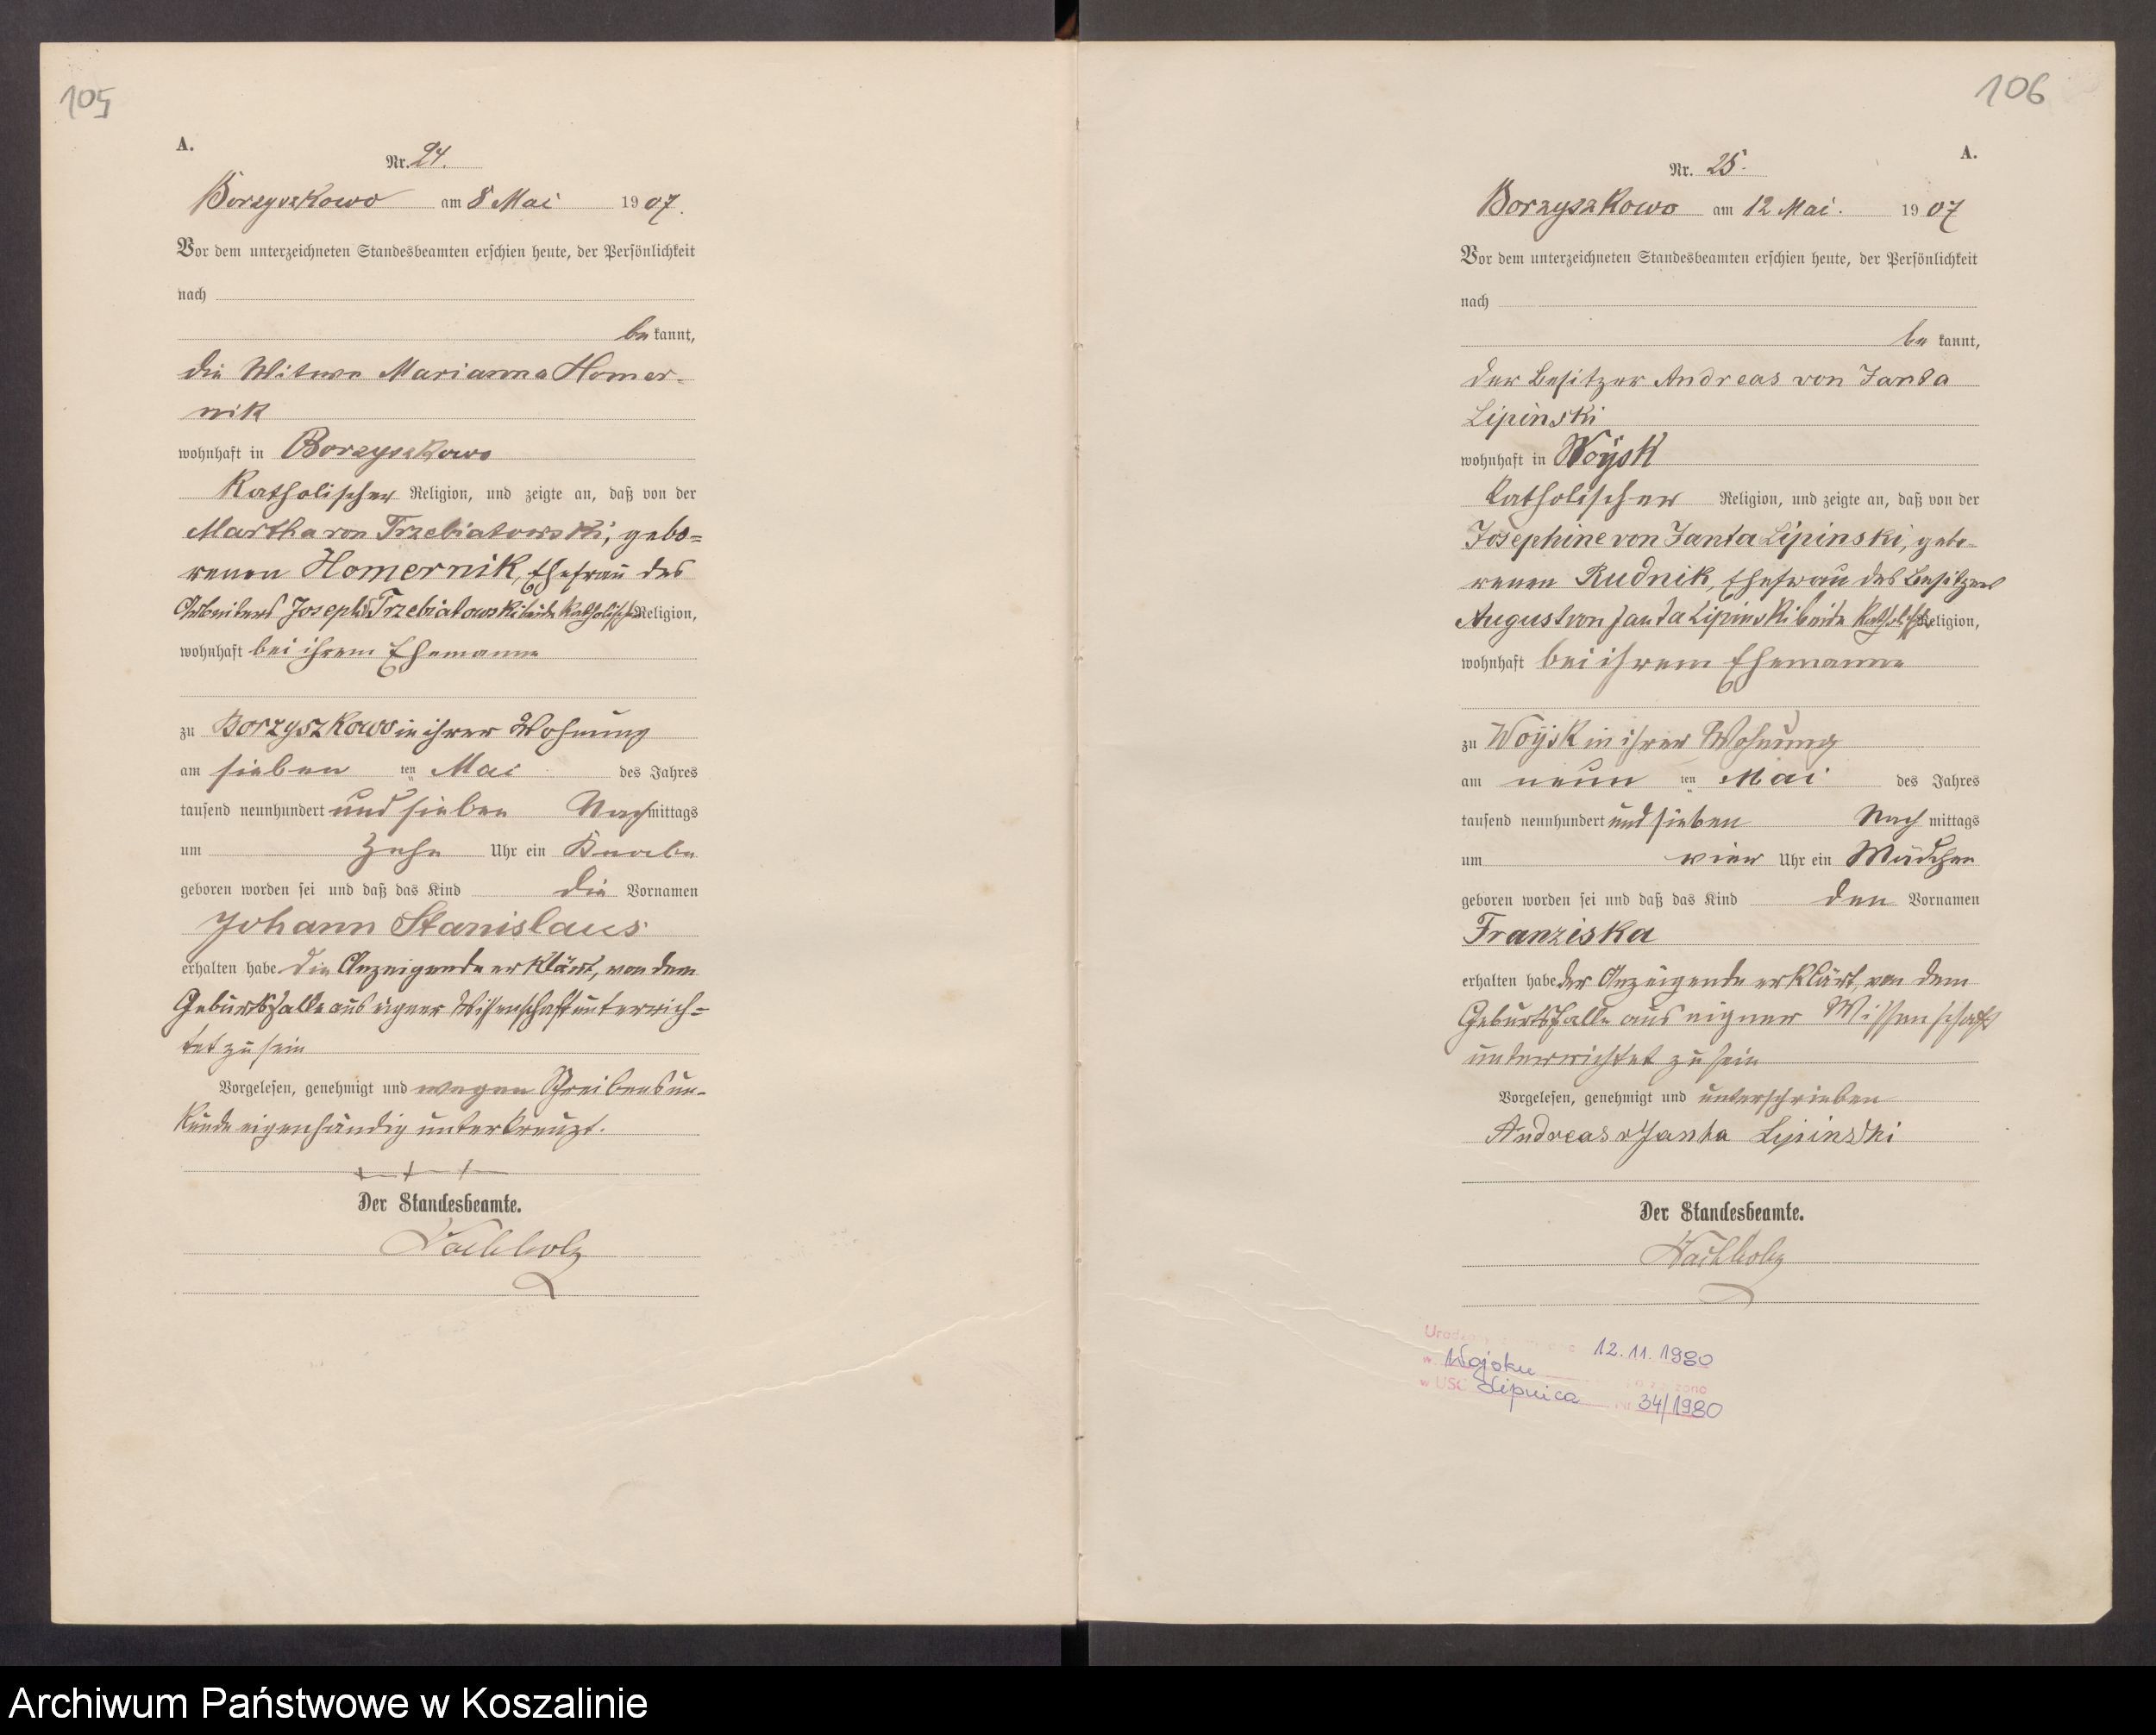 105
A.
Nr. 24.
Borzyszkowo am 8 Mai 1907.
Vor dem unterzeichneten Standesbeamten erschien heute, der Persönlichkeit
nach
be kannt,
die Witwe Marianna Homer-
nik
wohnhaft in Borzyszkowo
katholischer Religion, und zeigte an, daß von der
Martha von Trzebiatowski, gebo=
renen Homernik, Ehefrau des
Arbeiters Joseph v Trzebiatowski beide katholischer Religion,
wohnhaft bei ihrem Ehemanne
zu Borzyszkowo in ihrer Wohnung
am sieben ten Mai des Jahres
tausend neunhundert und sieben Nachmittags
um zehn Uhr ein Knabe
geboren worden sei und daß das Kind die Vornamen
Johann Stanislaus
erhalten habe. Die Anzeigende erklärt, von dem
Geburtsfalle aus eigner Wissenschaft unterrich=
tet zu sein
Vorgelesen, genehmigt und wegen Schreibensun-
kunde eigenhändig unterkreuzt.
+ + +
Der Standesbeamte.
106
A.
Nr. 25.
Borzyszkowo am 12 Mai. 1907
Vor dem unterzeichneten Standesbeamten erschien heute, der Persönlichkeit
nach
be kannt,
der Besitzer Andreas von Janta
Lipinski
wohnhaft in Woysk
katholischer Religion, und zeigte an, daß von der
Josephine von Janta Lipinski, gebo-
renen Rudnik, Ehefrau des Besitzers
August von Janta Lipinski beide katholischer Religion,
wohnhaft bei ihrem Ehemanne
zu Woysk in ihrer Wohnung
am neun ten Mai des Jahres
tausend neunhundert und sieben Nach mittags
um vier Uhr ein Mädchen
geboren worden sei und daß das Kind den Vornamen
Franziska
erhalten habe der Anzeigende erklärt, von dem
Geburtsfalle aus eigner Wissenschaft
unterrichtet zu sein
Vorgelesen, genehmigt und unterschrieben
Andreas v Janta Lipinski
Der Standesbeamte.
12.11.1980
w Wojsku
w USC Lipnica Nr 34/1980
Archiwum Państwowe w Koszalinie